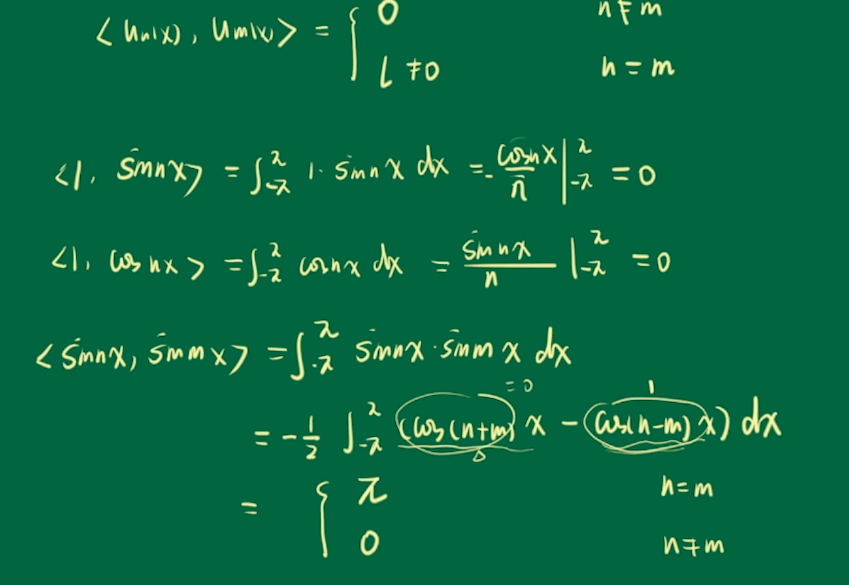 <uₙ(x), uₘ(x)> = { 0 n ≠ m
L ≠ 0 n = m
<1, sin nx> = ∫_{-π}^{π} 1 · sin nx dx = - cos nx / n |_{-π}^{π} = 0
<1, cos nx> = ∫_{-π}^{π} cos nx dx = sin nx / n |_{-π}^{π} = 0
<sin nx, sin mx> = ∫_{-π}^{π} sin nx · sin mx dx
= 0 1
= -1/2 ∫_{-π}^{π} (cos(n+m)x - cos(n-m)x) dx
= { π n = m
0 n ≠ m